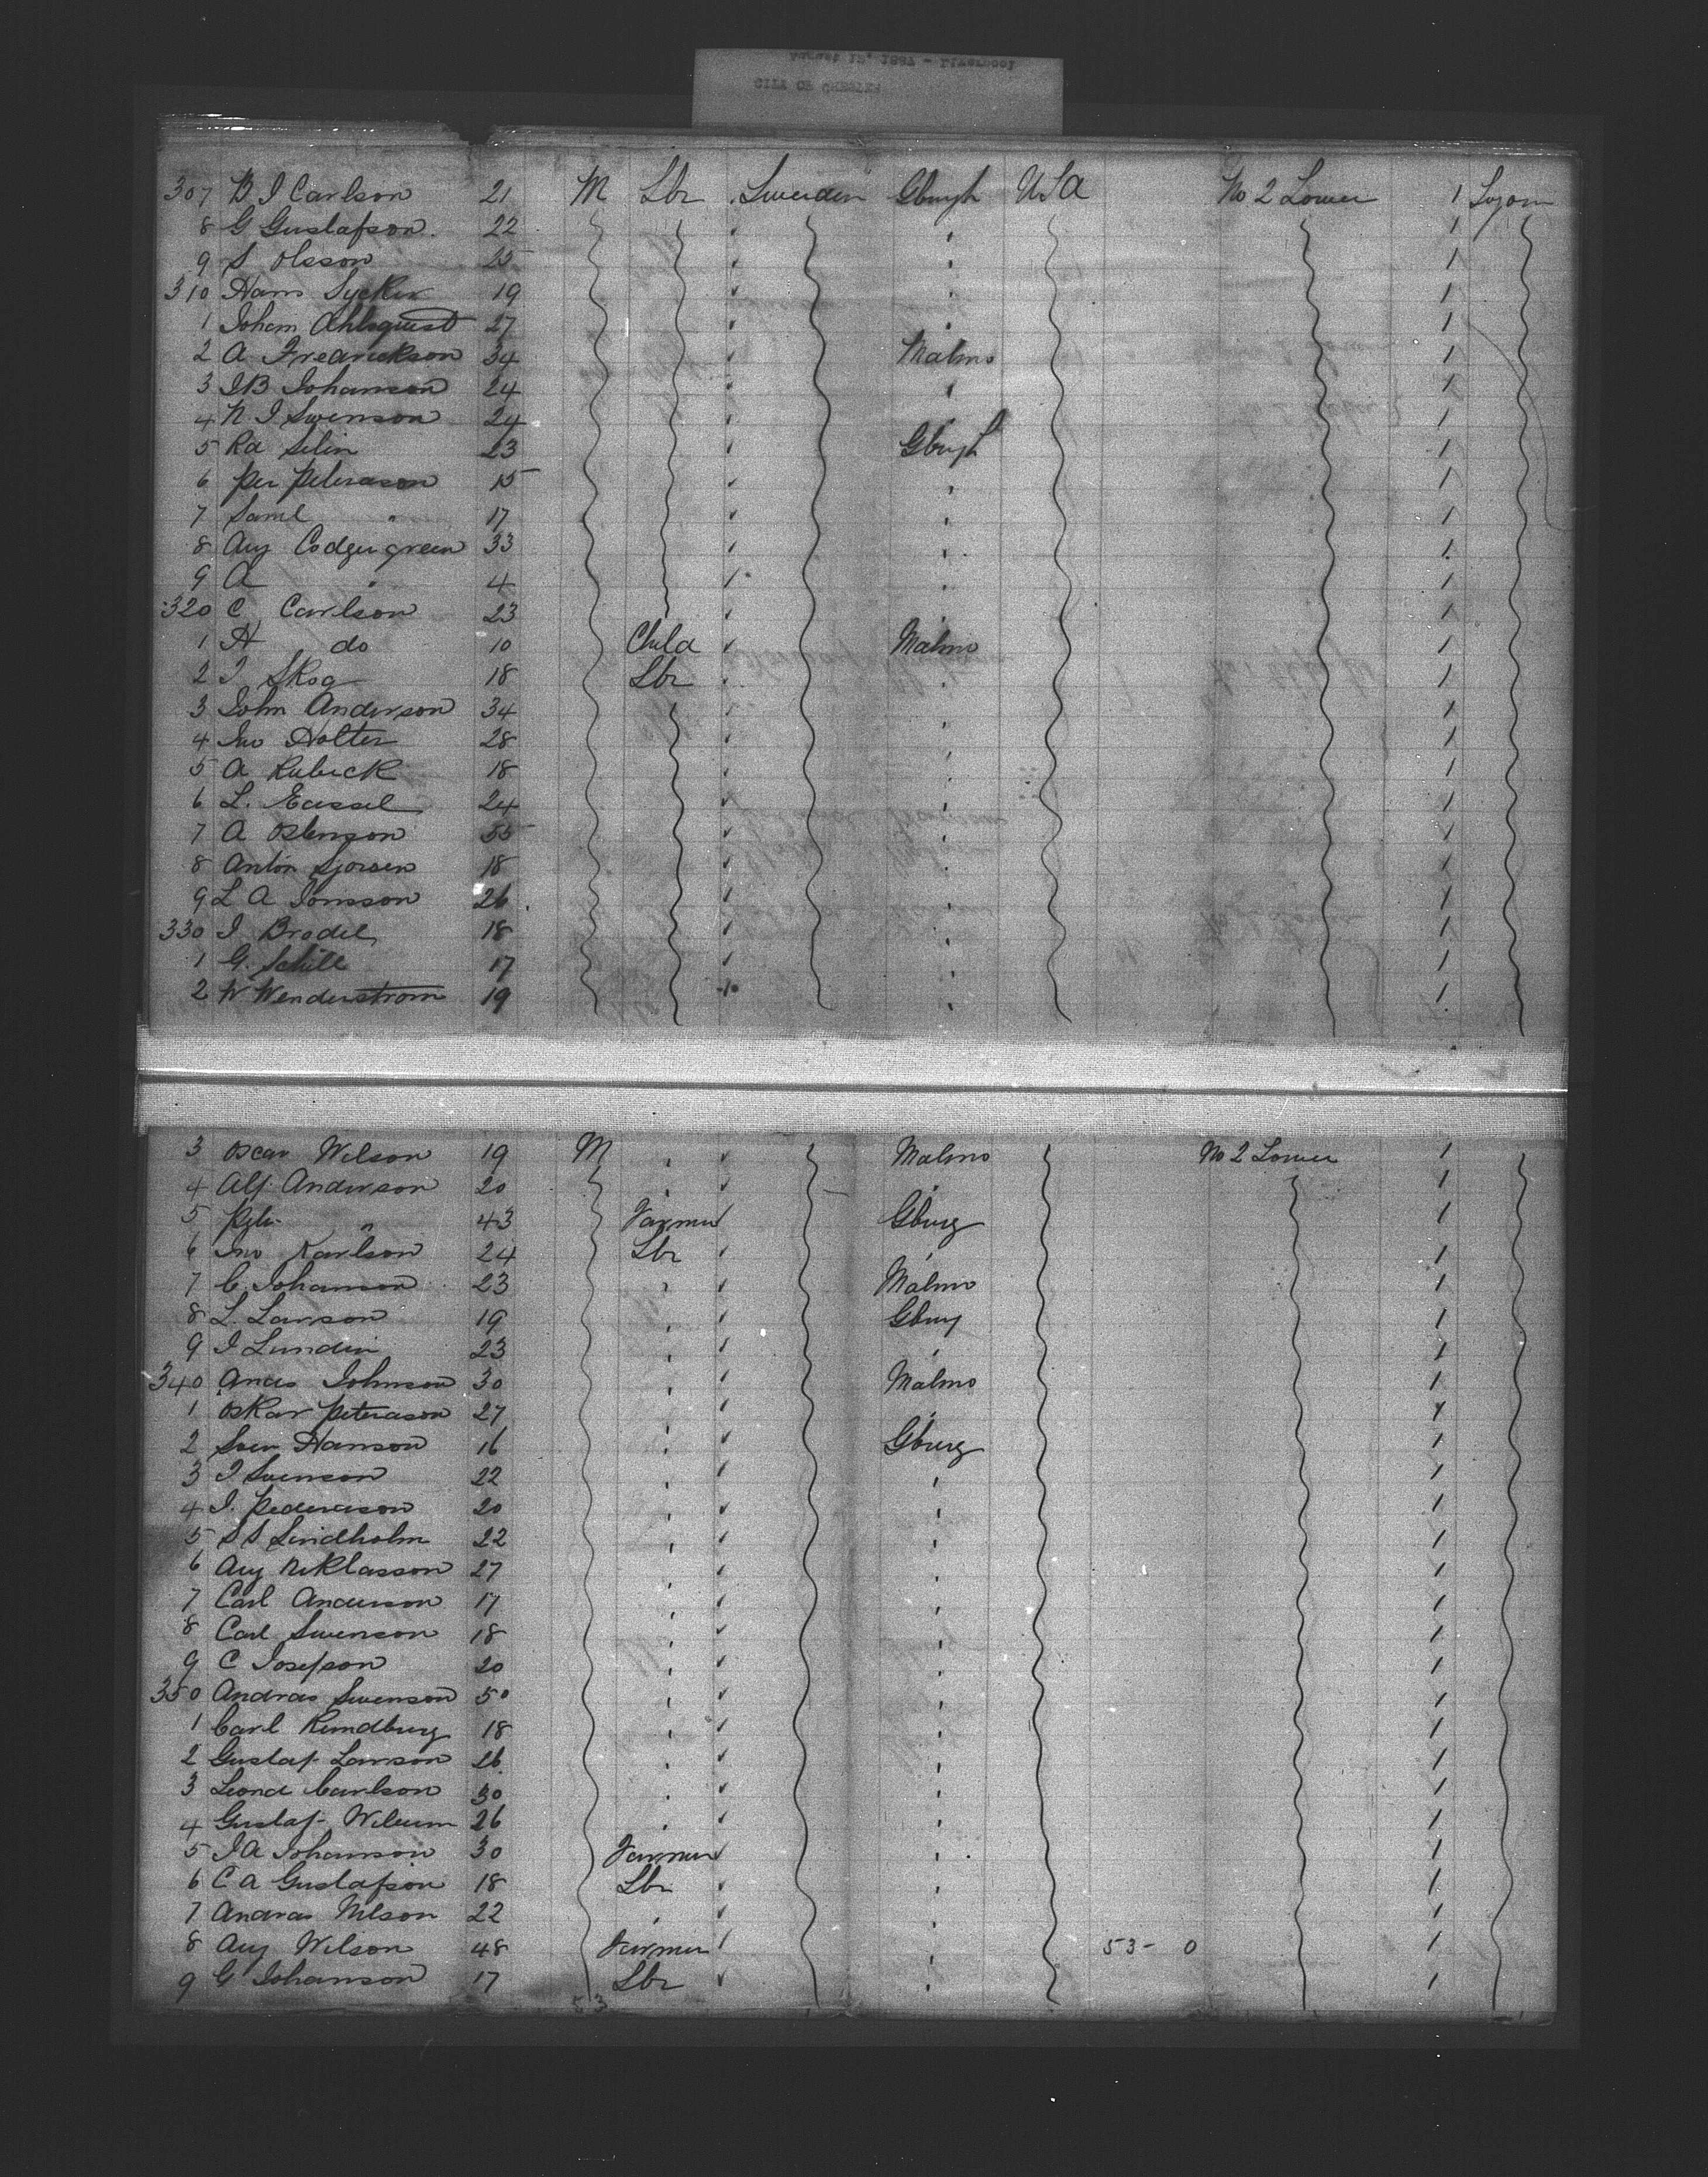 August 12, 1887 - Liverpool
CITY OF CHESTER
307 B J Carlson 21 M Lbr Sweeden Gburgh USA No 2 Lower 1 Sojorn
8 G Gustafson. 22 1
9 S Olsson 25 1
310 Hans 19 1
1 Johan Ahlsquist 27 1
2 A Fredrickson 34 Malmo 1
3 J B Johanson 24 1
4 N J Swenson 24 1
5 Ka Selin 23 Gburgh 1
6 Per Peterason 15 1
7 Saml " 17 1
8 Aug 33 1
9 A " 4 1
320 C Carlson 23 1
1 H do 10 Child Malmo 1
2 J Skog 18 Lbr 1
3 John Anderson 34 1
4 Jno Holter 28 1
5 A Rubeck 18 1
6 L. 24 1
7 A 55 1
8 Anton Sjorsen 18 1
9 L A Jonsson 26 1
330 J Brodel 18 1
1 G. Schill 17 1
2 W Wenderstrom 19 1
3 Oscar Wilson 19 M Malmo No 2 Lower 1
4 Alf Anderson 20 1
5 Petr " 43 Farmer Gburg 1
6 Jno Karlson 24 Lbr 1
7 C Johanson 23 Malmo 1
8 L. Larson 19 Gburg 1
9 J Lundin 23 1
340 Andes Johnson 30 Malmo 1
1 Oskar Peterason 27 1
2 Sven Hanson 16 Gburg 1
3 J Svenson 22 1
4 J. Pederason 20 1
5 S S Lindholm 22 1
6 Aug Niklasson 27 1
7 Carl Anderson 17 1
8 Carl Swenson 18 1
9 C Josefson 20 1
350 Andras Swenson 50 1
1 Carl Rundburg 18 1
2 Gustaf Larson 26 1
3 Leond Carlson 30 1
4 Gustaf 26 1
5 J A Johanson 30 Farmer 1
6 C A Gustafson 18 Lbr 1
7 Andras Nilson 22 1
8 Aug Wilson 48 Farmer 53- 0 1
9 G Johanson 17 Lbr 1
53